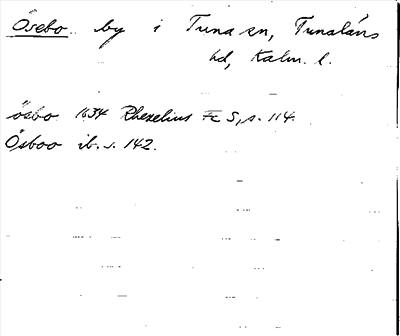 Ösebo by i Tuna sn, Tunaläns
hd, Kalm. l.
ösbo 1634 Rhezelius Fc 5, s. 114.
Ösboo ib. s. 142.